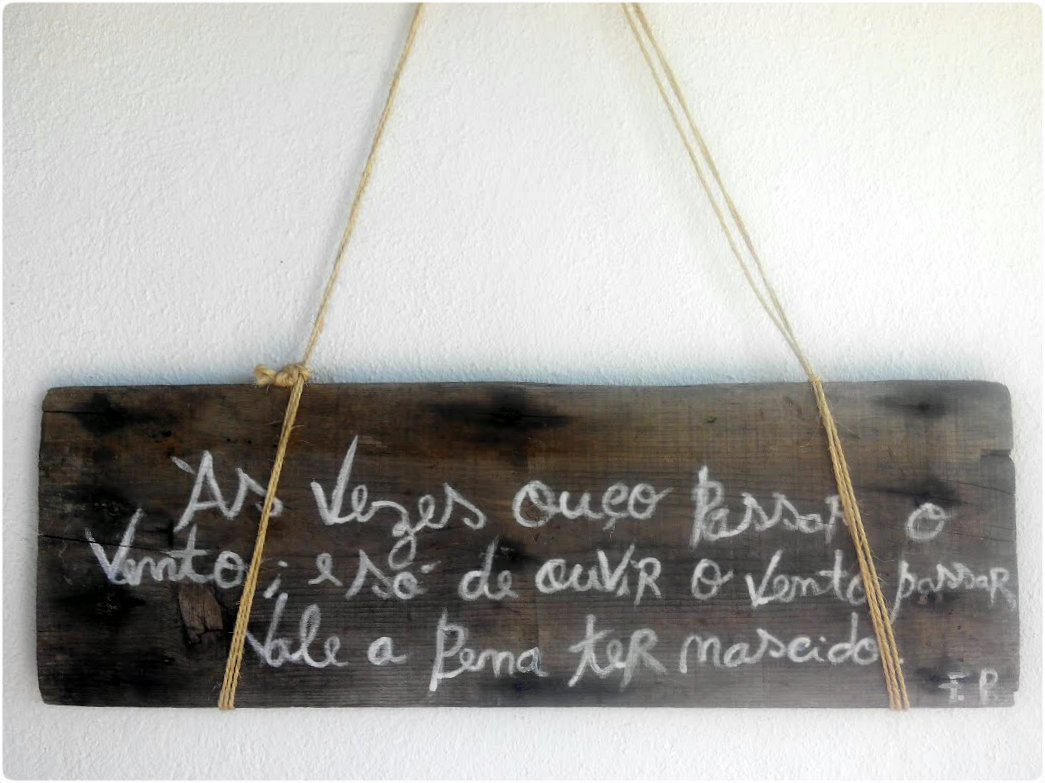 Às Vezes ouço Passar o
Vento; e só de ouViR o vento passaR
Vale a Pena teR nascido.
F. P.